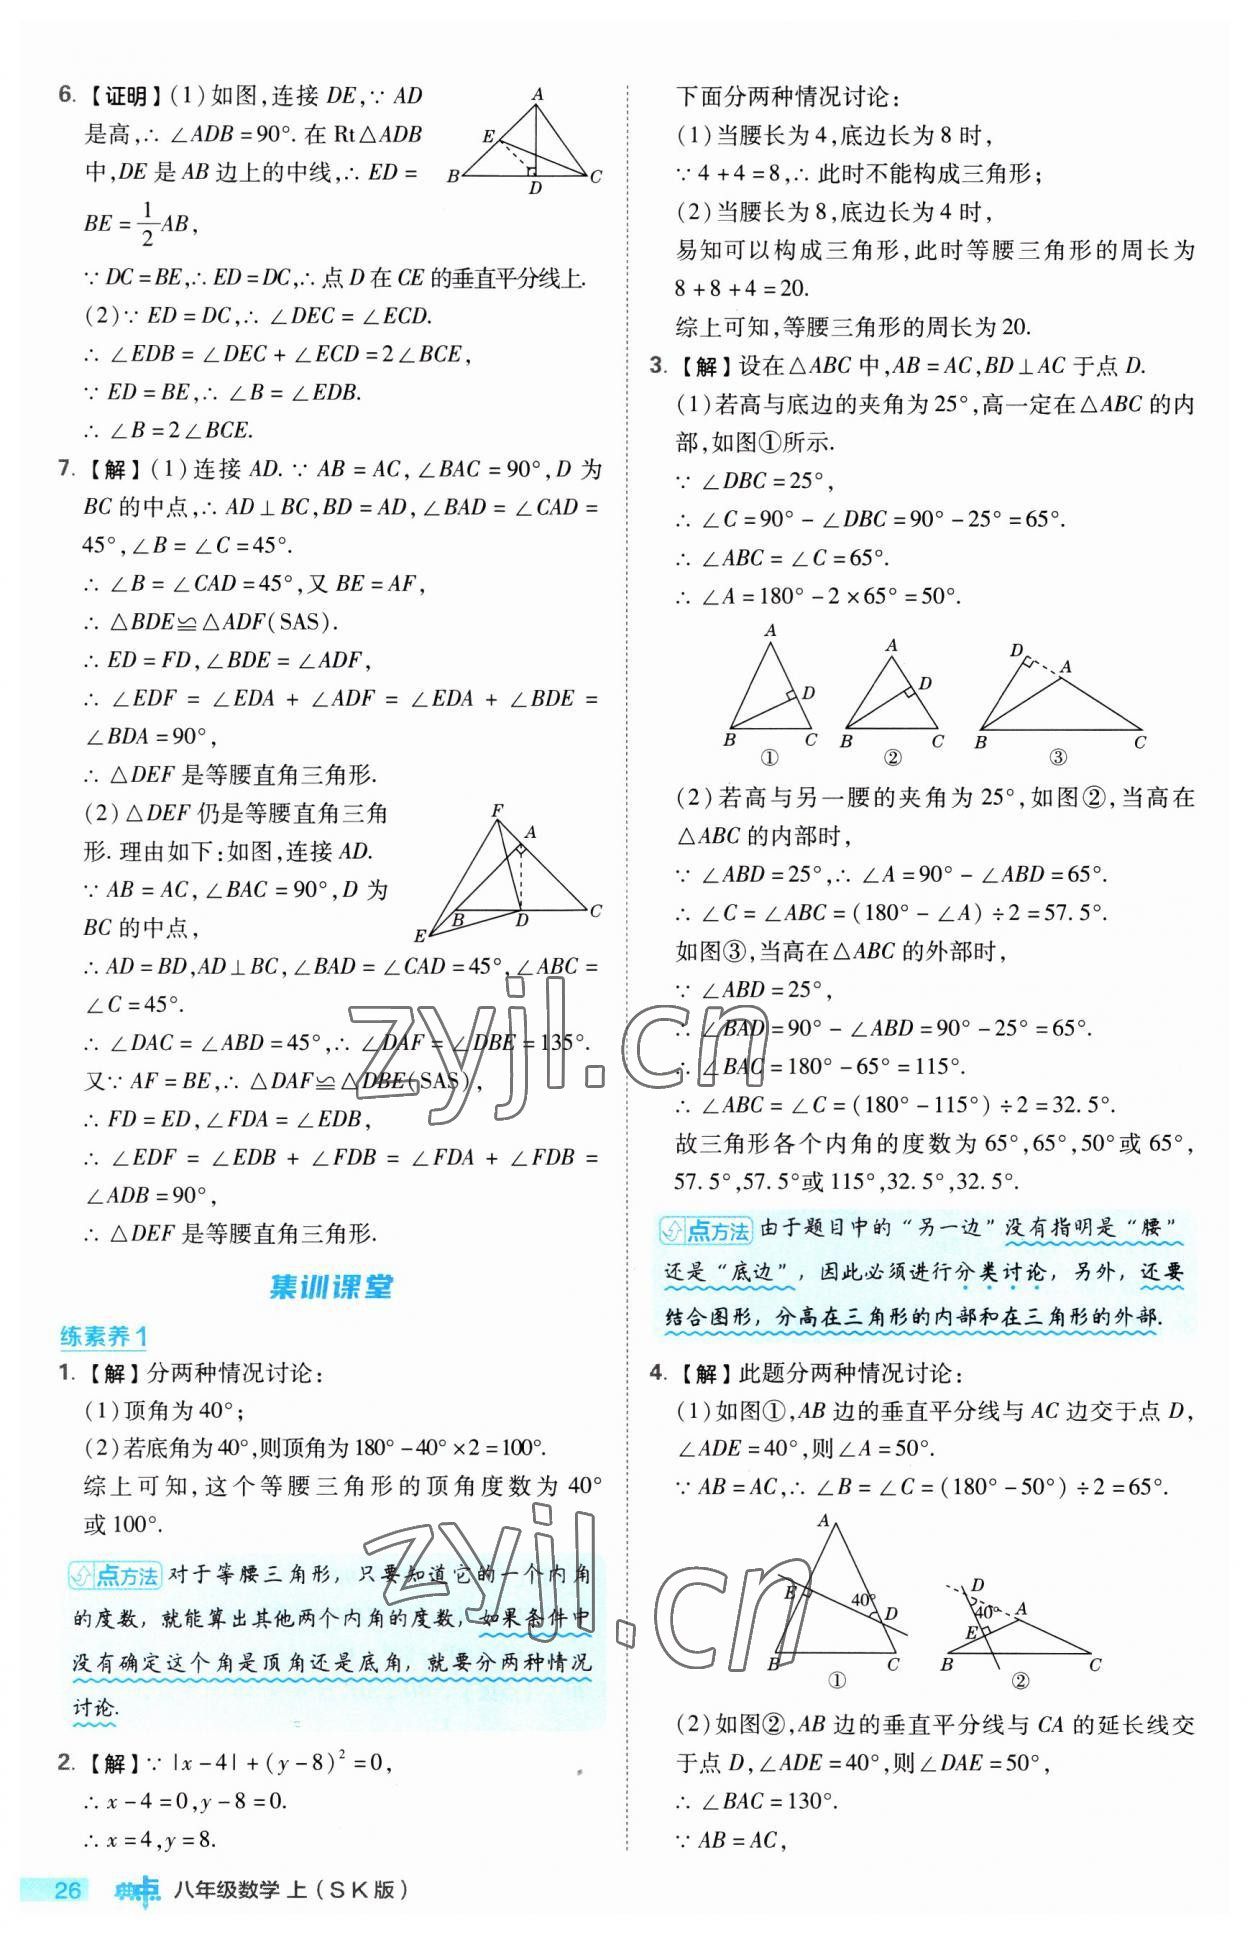 6. 【证明】(1)如图,连接 DE,∵ AD
是高,∴ ∠ADB=90°. 在 Rt△ADB
中,DE 是 AB 边上的中线,∴ ED=
BE=1/2AB,
∵ DC=BE,∴ ED=DC,∴ 点 D 在 CE 的垂直平分线上.
(2)∵ ED=DC,∴ ∠DEC=∠ECD.
∴ ∠EDB=∠DEC+∠ECD=2∠BCE,
∵ ED=BE,∴ ∠B=∠EDB.
∴ ∠B=2∠BCE.
A
E
B
D
C
7. 【解】(1)连接 AD. ∵ AB=AC,∠BAC=90°,D 为
BC 的中点,∴ AD⊥BC,BD=AD,∠BAD=∠CAD=
45°,∠B=∠C=45°.
∴ ∠B=∠CAD=45°,又 BE=AF,
∴ △BDE≌△ADF(SAS).
∴ ED=FD,∠BDE=∠ADF,
∴ ∠EDF=∠EDA+∠ADF=∠EDA+∠BDE=
∠BDA=90°,
∴ △DEF 是等腰直角三角形.
(2)△DEF 仍是等腰直角三角
形. 理由如下:如图,连接 AD.
∵ AB=AC,∠BAC=90°,D 为
BC 的中点,
F
A
B
D
C
E
∴ AD=BD,AD⊥BC,∠BAD=∠CAD=45°,∠ABC=
∠C=45°.
∴ ∠DAC=∠ABD=45°,∴ ∠DAF=∠DBE=135°.
又∵ AF=BE,∴ △DAF≌△DBE(SAS),
∴ FD=ED,∠FDA=∠EDB,
∴ ∠EDF=∠EDB+∠FDB=∠FDA+∠FDB=
∠ADB=90°,
∴ △DEF 是等腰直角三角形.
集训课堂
练素养1
1. 【解】分两种情况讨论:
(1)顶角为 40°;
(2)若底角为 40°,则顶角为 180°-40°×2=100°.
综上可知,这个等腰三角形的顶角度数为 40°
或 100°.
点方法 对于等腰三角形,只要知道它的一个内角
的度数,就能算出其他两个内角的度数,如果条件中
没有确定这个角是顶角还是底角,就要分两种情况
讨论.
2. 【解】∵ |x-4|+(y-8)²=0,
∴ x-4=0,y-8=0.
∴ x=4,y=8.
下面分两种情况讨论:
(1)当腰长为 4,底边长为 8 时,
∵ 4+4=8,∴ 此时不能构成三角形;
(2)当腰长为 8,底边长为 4 时,
易知可以构成三角形,此时等腰三角形的周长为
8+8+4=20.
综上可知,等腰三角形的周长为 20.
3. 【解】设在△ABC 中,AB=AC,BD⊥AC 于点 D.
(1)若高与底边的夹角为 25°,高一定在△ABC 的内
部,如图①所示.
∵ ∠DBC=25°,
∴ ∠C=90°-∠DBC=90°-25°=65°.
∴ ∠ABC=∠C=65°.
∴ ∠A=180°-2×65°=50°.
A
D
B
C
①
A
D
B
C
②
D
A
B
C
③
(2)若高与另一腰的夹角为 25°,如图②,当高在
△ABC 的内部时,
∵ ∠ABD=25°,∴ ∠A=90°-∠ABD=65°.
∴ ∠C=∠ABC=(180°-∠A)÷2=57.5°.
如图③,当高在△ABC 的外部时,
∵ ∠ABD=25°,
∴ ∠BAD=90°-∠ABD=90°-25°=65°.
∴ ∠BAC=180°-65°=115°.
∴ ∠ABC=∠C=(180°-115°)÷2=32.5°.
故三角形各个内角的度数为 65°,65°,50°或 65°,
57.5°,57.5°或 115°,32.5°,32.5°.
点方法 由于题目中的“另一边”没有指明是“腰”
还是“底边”,因此必须进行分类讨论,另外,还要
结合图形,分高在三角形的内部和在三角形的外部.
4. 【解】此题分两种情况讨论:
(1)如图①,AB 边的垂直平分线与 AC 边交于点 D,
∠ADE=40°,则∠A=50°.
∵ AB=AC,∴ ∠B=∠C=(180°-50°)÷2=65°.
A
E
40°
D
B
C
①
D
40°
A
E
B
C
②
(2)如图②,AB 边的垂直平分线与 CA 的延长线交
于点 D,∠ADE=40°,则∠DAE=50°,
∴ ∠BAC=130°.
∵ AB=AC,
zyjl.cn
zyjl.cn
26 典中点 八年级数学 上(SK版)